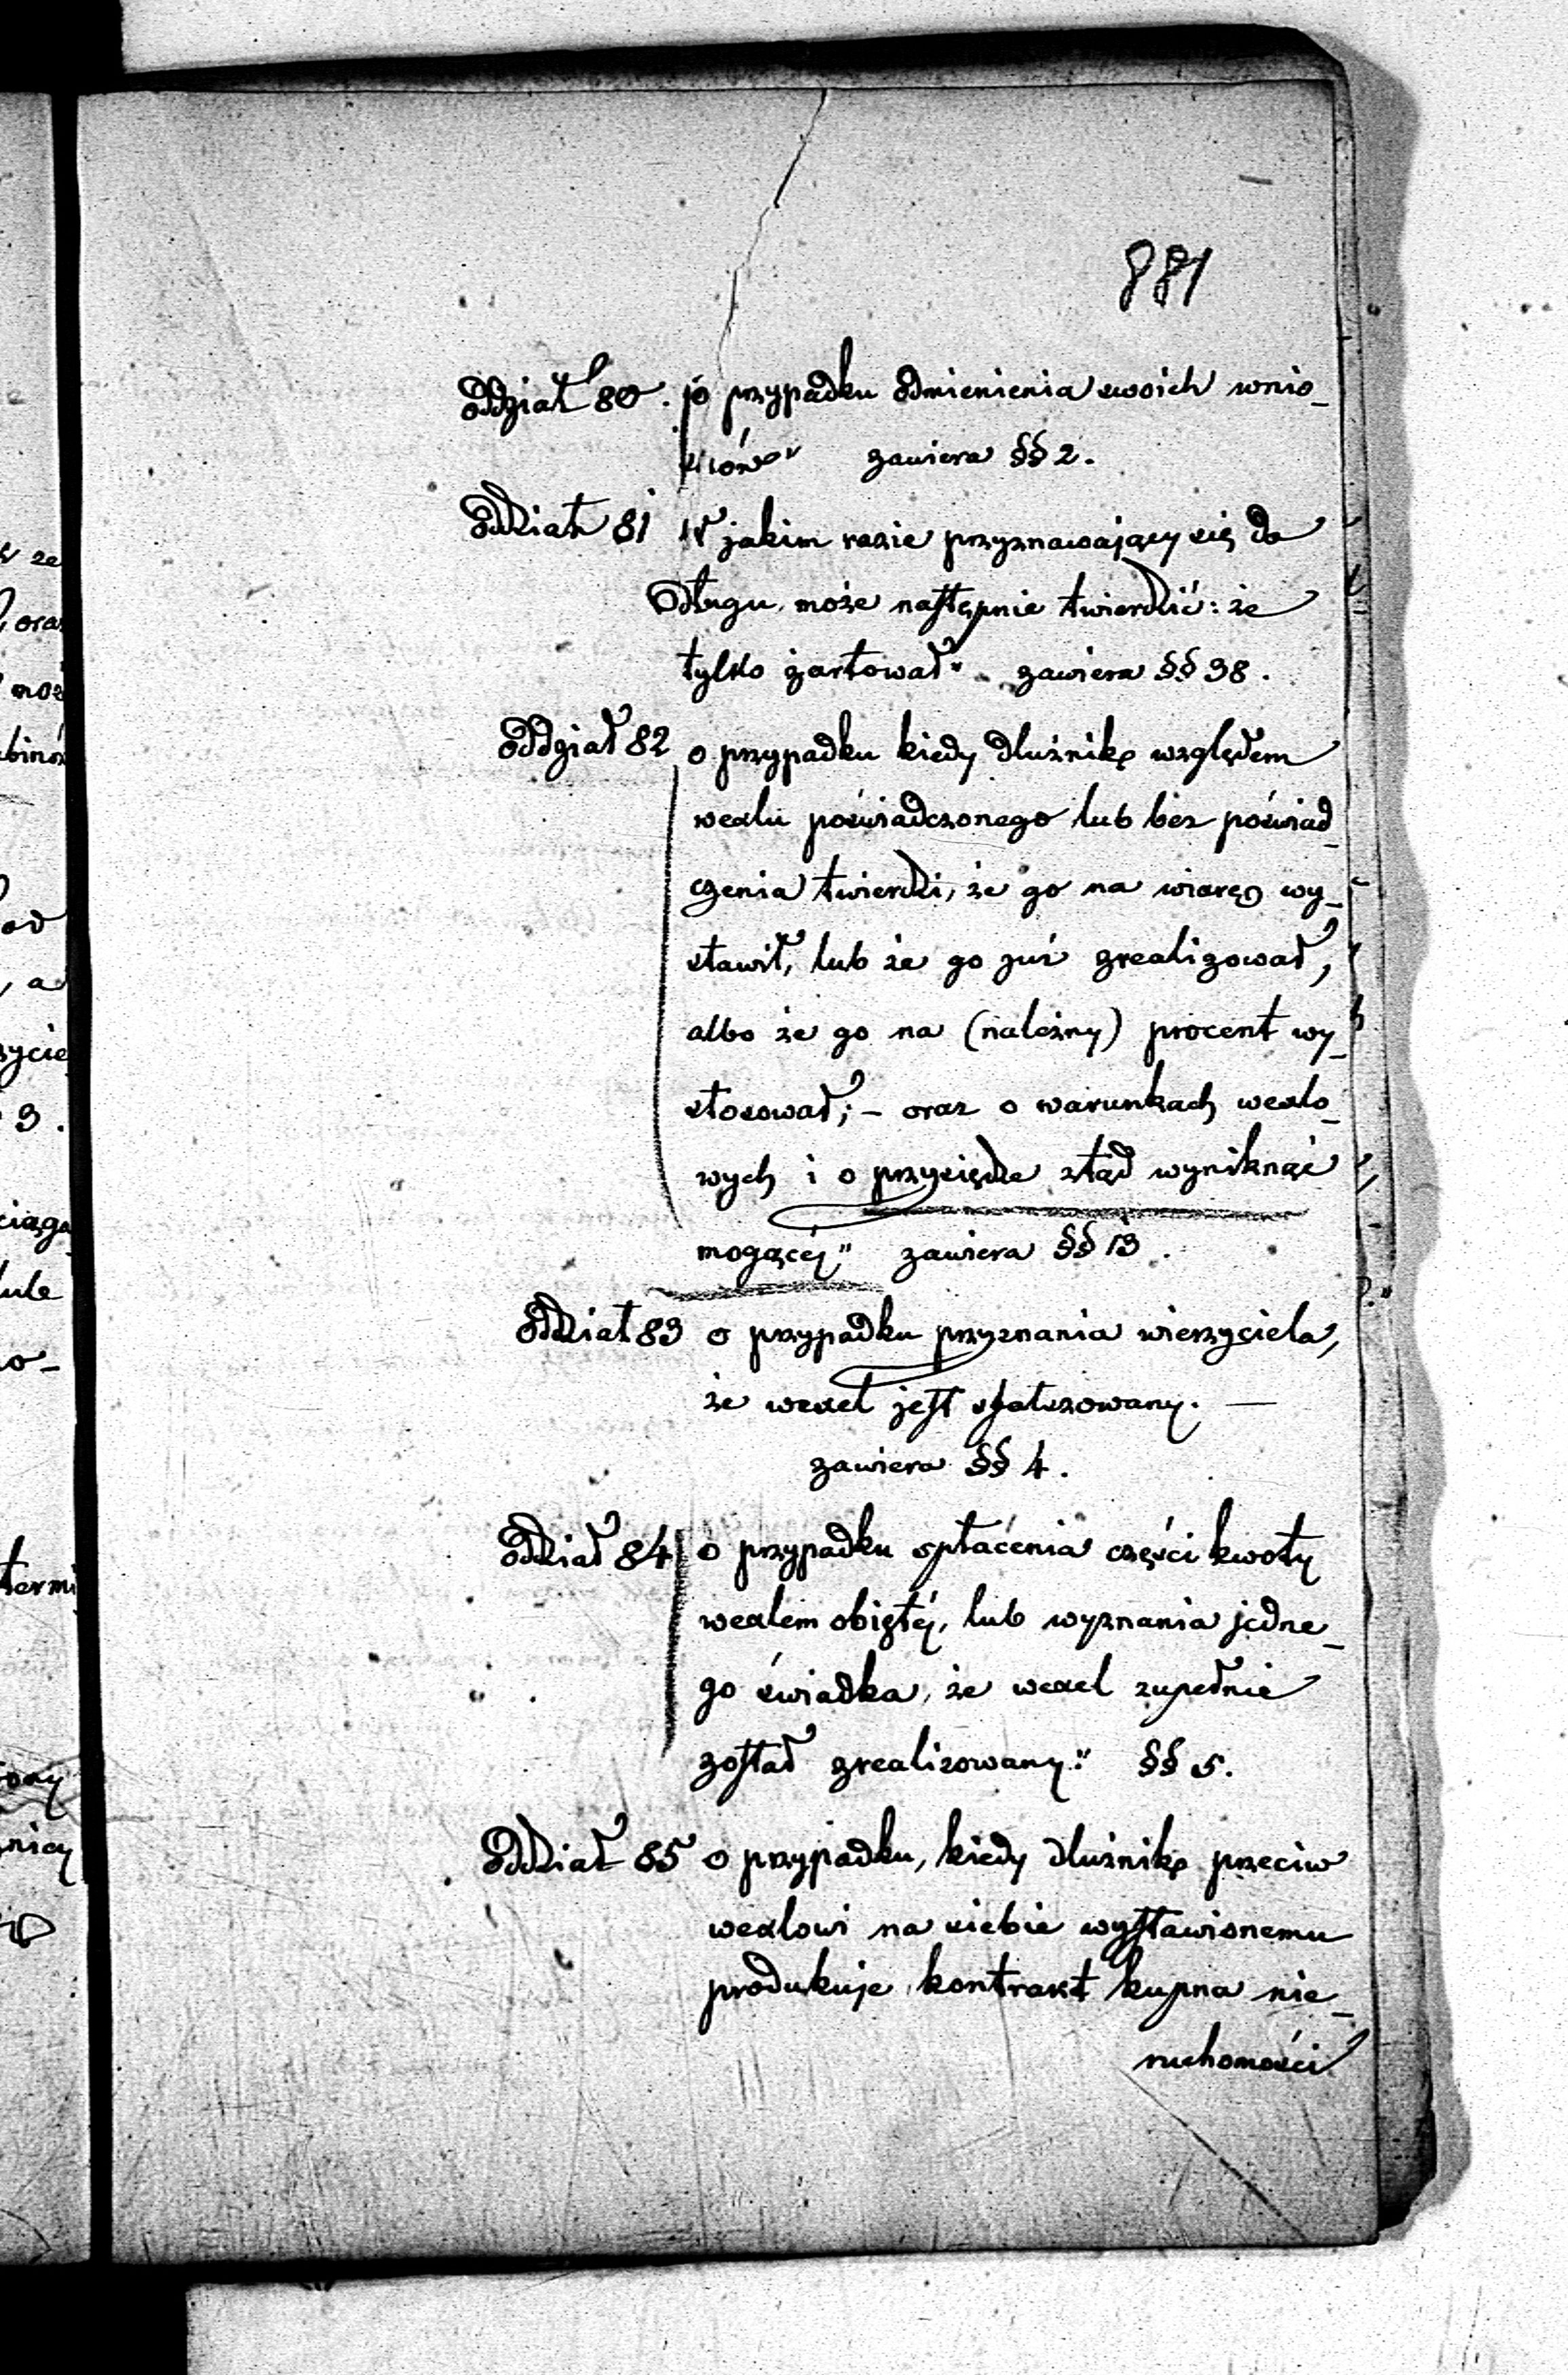 881
Oddział 80. o przypadku odmienienia swoich wnio_
sków" zawiera §§ 2.
Oddział 81 W jakim razie przyznawający się do
Długu może następnie twierdzić: że
tylko żartował" zawiera §§ 38.
Oddział 82 o przypadku kiedy dłużnik względem
wexlu poświadczonego lub bez poświad_
czenia twierdzi, że go na wiarę wy_
stawił, lub że go już zrealizował,
albo że go na (należny) procent wy_
stosował; – oraz o warunkach wexlo_
wych i o przysiędze ztąd wyniknąć
mogącéj" zawiera §§ 13.
Oddział 83 o przypadku przyznania wierzyciela,
że wexel jest sfałszowany. —
zawiera §§ 4.
Oddział 84 o przypadku spłacenia części kwoty
wexlem objętéj, lub wyznania jedne_
go świadka, że wexel zupełnie
został zrealizowany." §§ 5.
Oddział 85 o przypadku, kiedy dłużnik przeciw
wexlowi na siebie wystawionemu
produkuje kontrakt kupna nie_
ruchomości